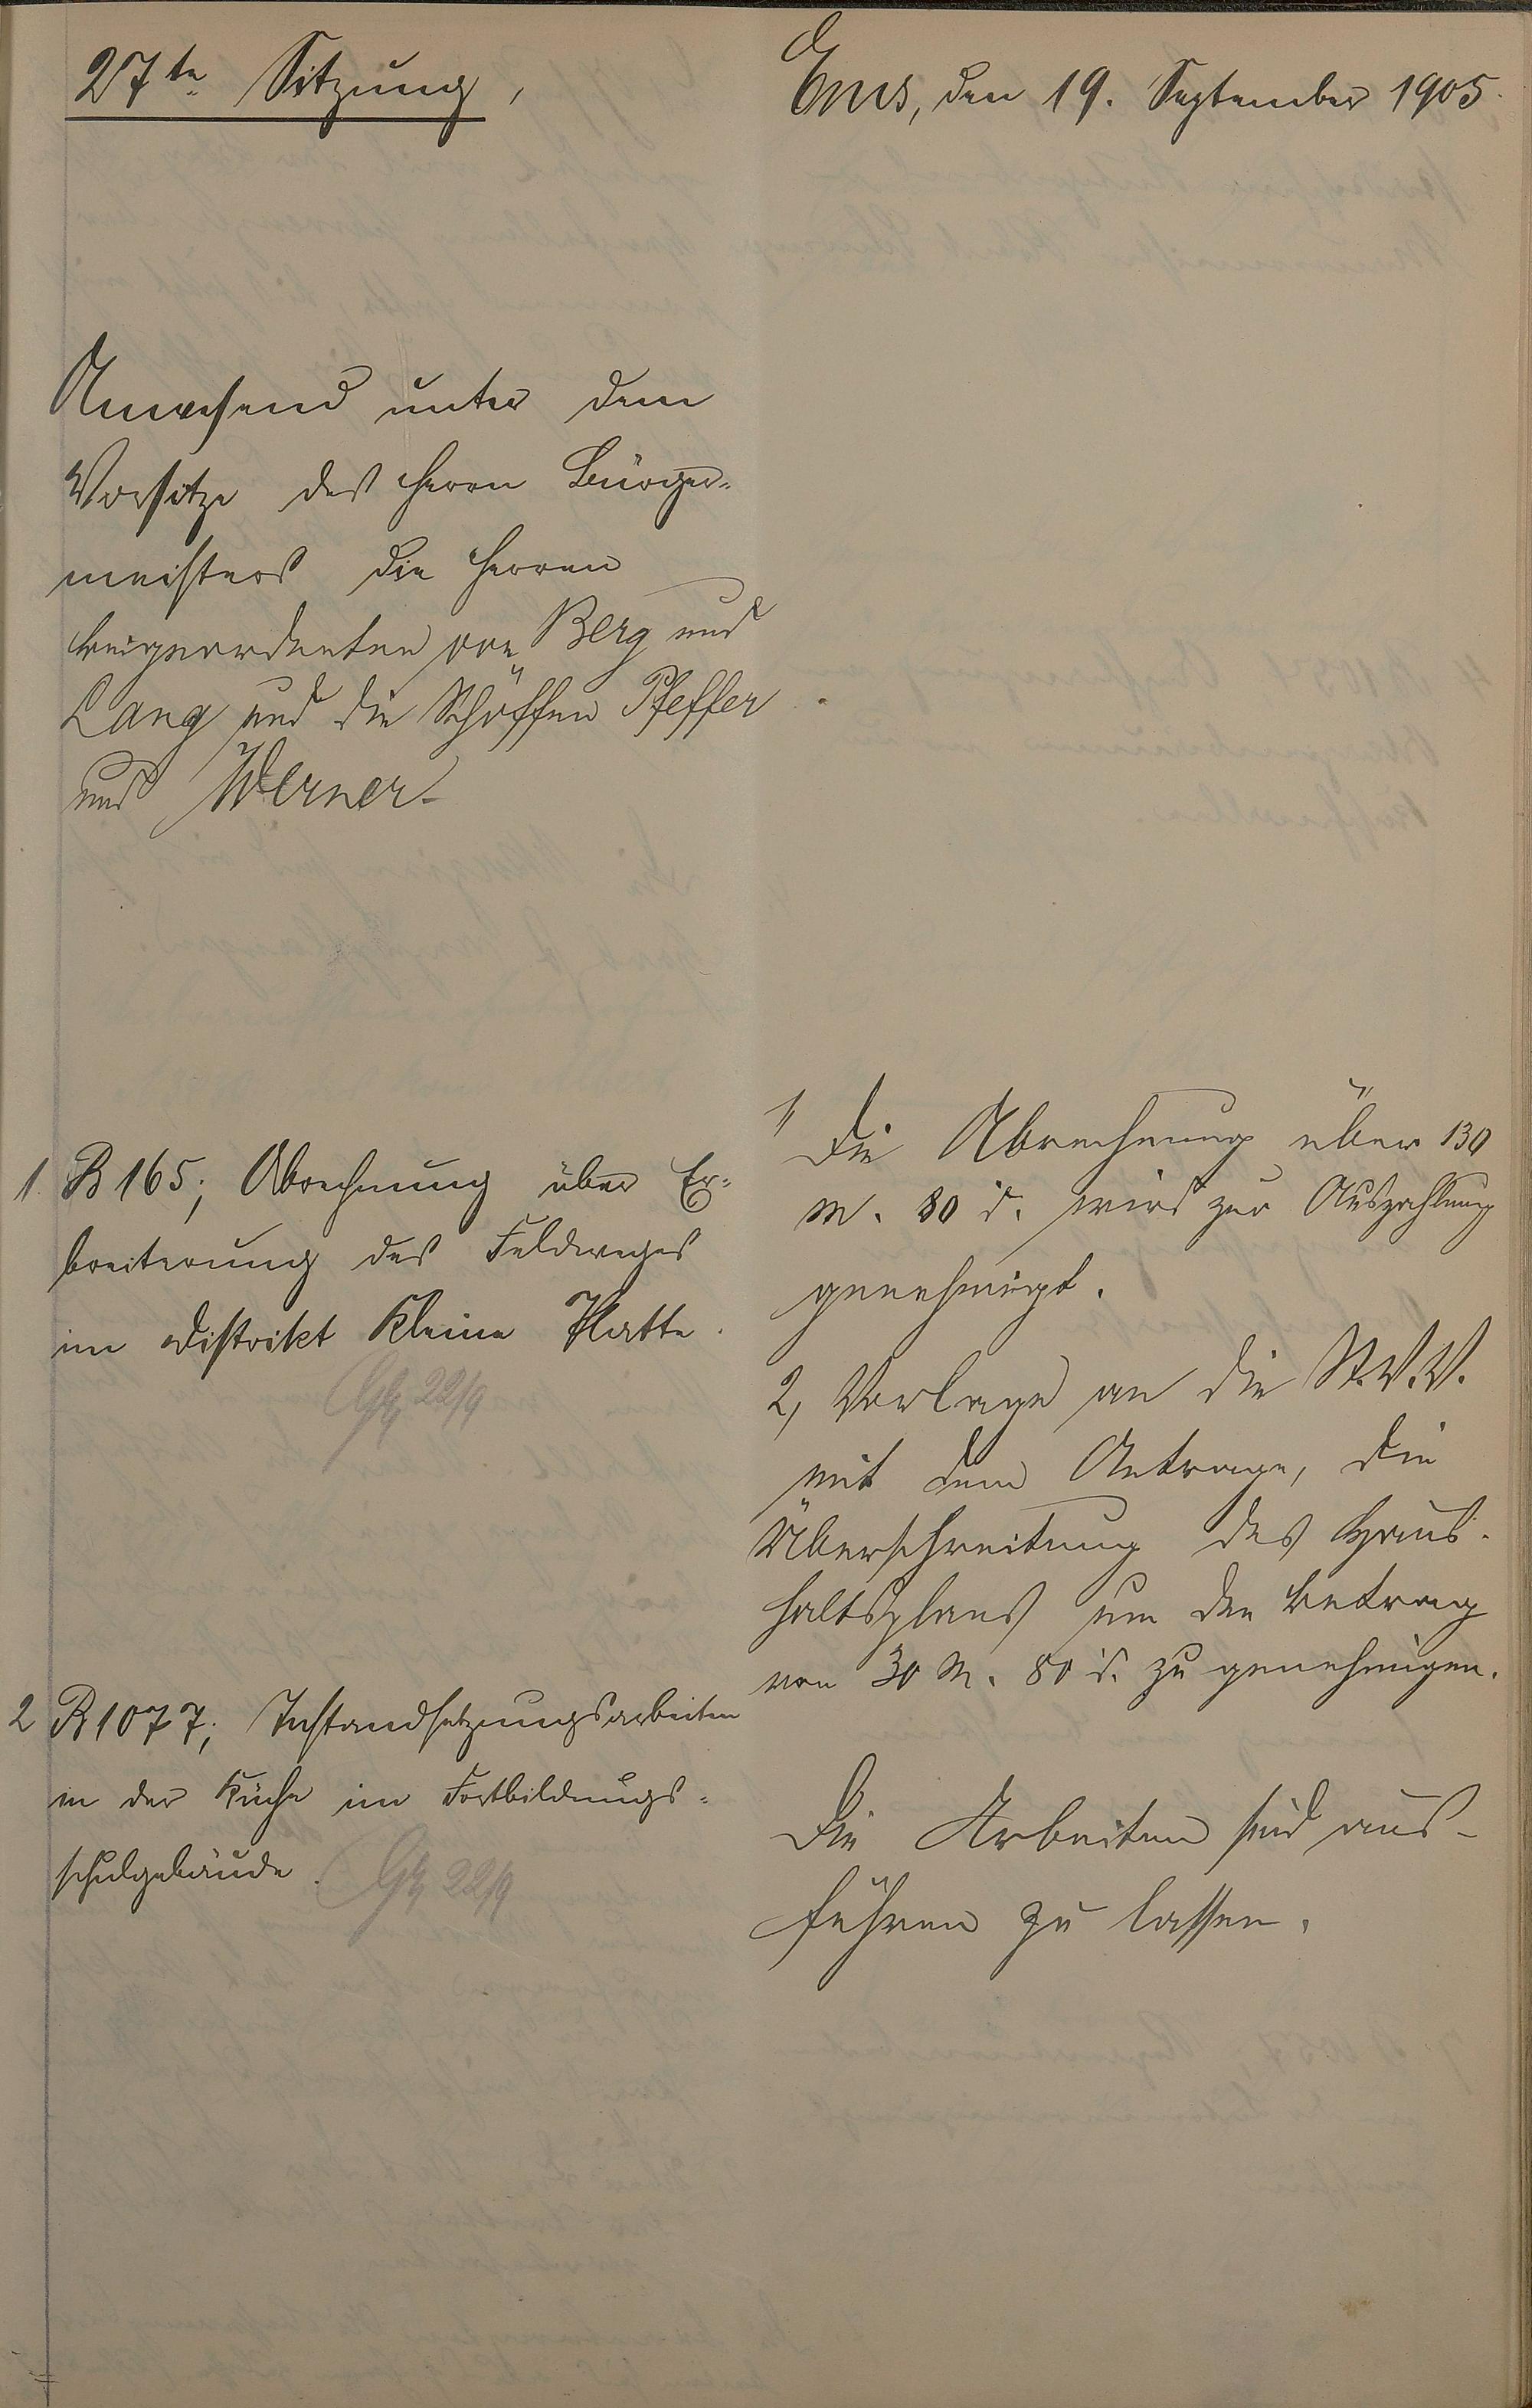 27te Sitzung,
Ems, den 19. September 1905.
Anwesend unter dem
Vorsitze des Herrn Bürger-
meisters die Herren
Beigeordneten von Berg und
Lang und die Schöffen Pfeffer
und Werner.
1. B 165; Abrechnung über Er-
breiterung des Feldweges
im Distrikt Kleine Platte.
22/9
1, Die Abrechnung über 130
M. 80 d. wird zur Auszahlung
genehmigt.
2, Vorlage an die St.V.V.
mit dem Antrage, die
Überschreitung des Haus-
haltsplans um den Betrag
von 30 M. 80 d. zu genehmigen.
2 B 1077; Instandsetzungsarbeiten
in der Küche im Fortbildungs-
schulgebäude.
22/9
Die Arbeiten sind aus-
führen zu lassen.